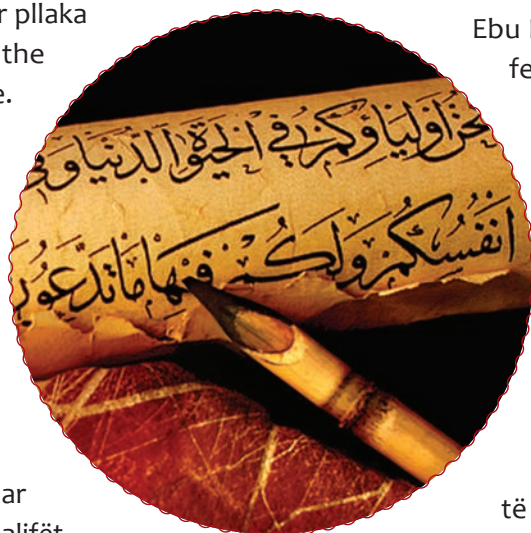 pllaka
the
e.
Ebu
fe
نحن اولياؤكم في الحيوة الدنيا وفي
انفسكم ولكم فيها ما تدعون
ar
të